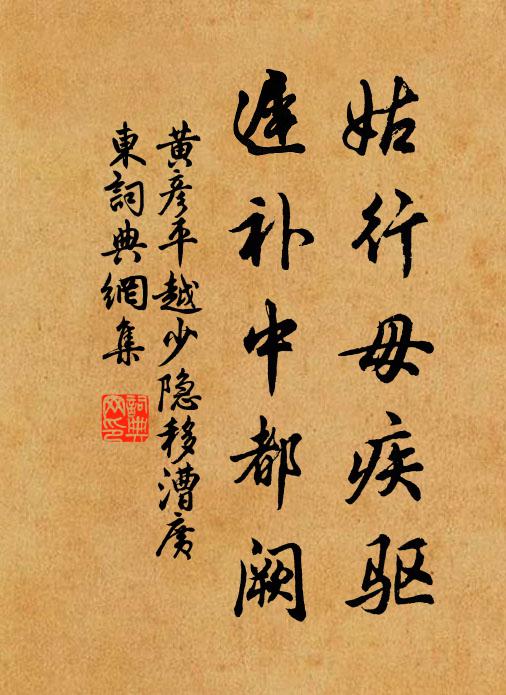 姑行毋疾驱
遲补中都阙
黄彦平越少隐移漕廣
東詞典網集
詞典
网印